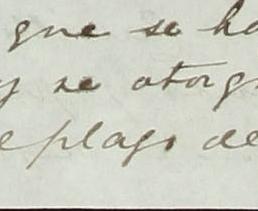 que se ha
y se otorg
e plazo de